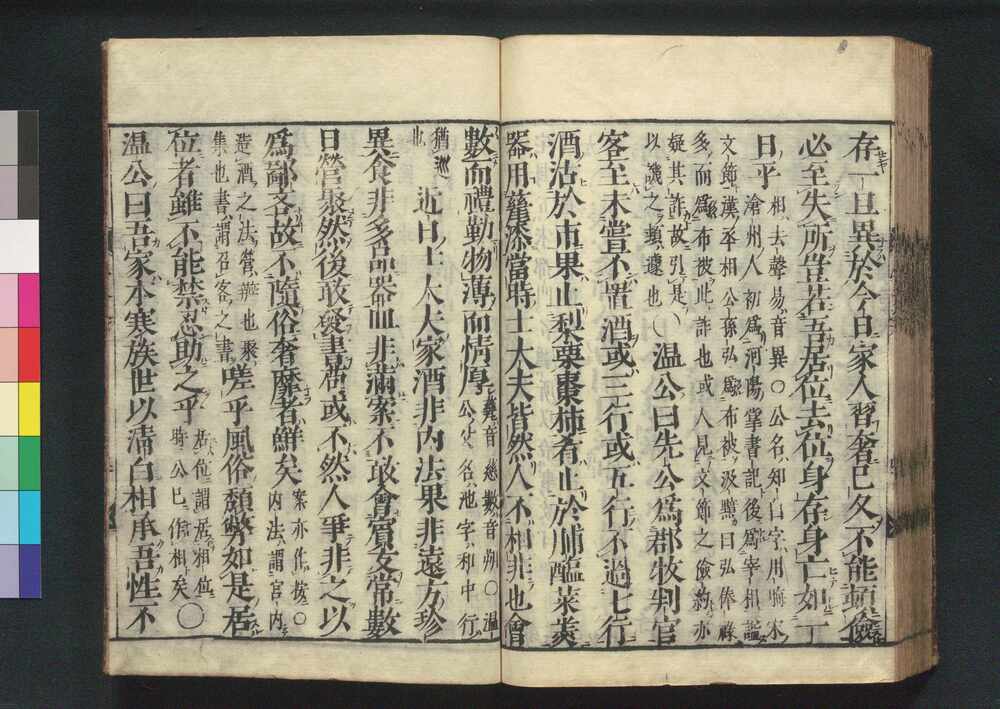 存一旦異於今日家人習奢已久不能頓儉
必至失所豈若吾居位去位身存身亡如一
日乎
相去聲易音異○公名知白字用晦宋
滄州人初爲河陽掌書記後爲宰相諡
文節漢平相公孫弘爲布被汲黯曰弘俸祿
多而爲布被此詐也或人見文節之儉約亦
疑其詐故引是
以譏之頓遽也
○温公曰先公爲郡牧判官
客至未嘗不置酒或三行或五行不過七行
酒沽於市果止梨栗棗柿肴止於脯醢菜羹
器用甆漆當時士大夫皆然人不相非也會
數而禮勤物薄而情厚
甆音慈數音朔○温
公父名池字和中行
猶巡
也
近日士大夫家酒非内法果非遠方珍
異食非多品器皿非滿案不敢會賓友常數
日營聚然後敢發書苟或不然人爭非之以
爲鄙吝故不隨俗奢靡者鮮矣
案亦作按○
内法謂官内
造酒之法營辦也聚
集也書謂召客之書
嗟乎風俗頽弊如是居
位者雖不能禁忍助之乎
居位謂居相位
時公已作相矣
○
温公曰吾家本寒族世以清白相承吾性不